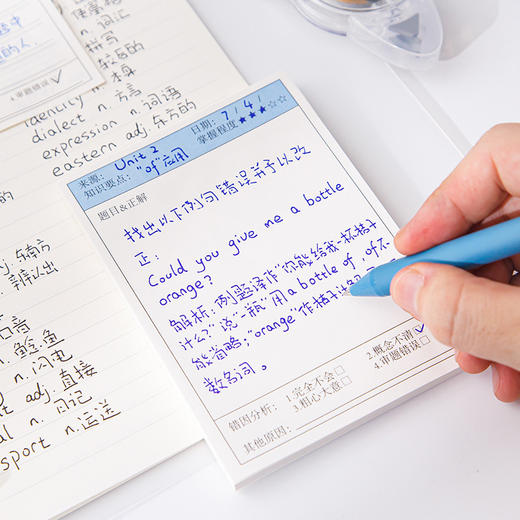 审题错误
n. 词汇
拼写
n. 方言
dialect
expression n. 词语
eastern adj. 东方的
来源: Unit 2
日期: 7/4/
知识要点: "of"应用
掌握程度★★★☆☆
题目&正解
找出以下例句错误并予以改
正:
Could you give me a bottle
orange?
解析: 例题译作"你能给我一杯桔子
什么?"说一瓶"用a bottle of, of不
能省略;"orange"作桔子汁
数名词。
错因分析: 1.完全不会□ 2.概念不清☑
3.粗心大意□ 4.审题错误□
其他原因:
adj. 直接
n. 闪电
n. 运送